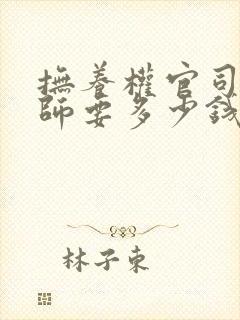 撫養權官司
師要多少錢
林子東